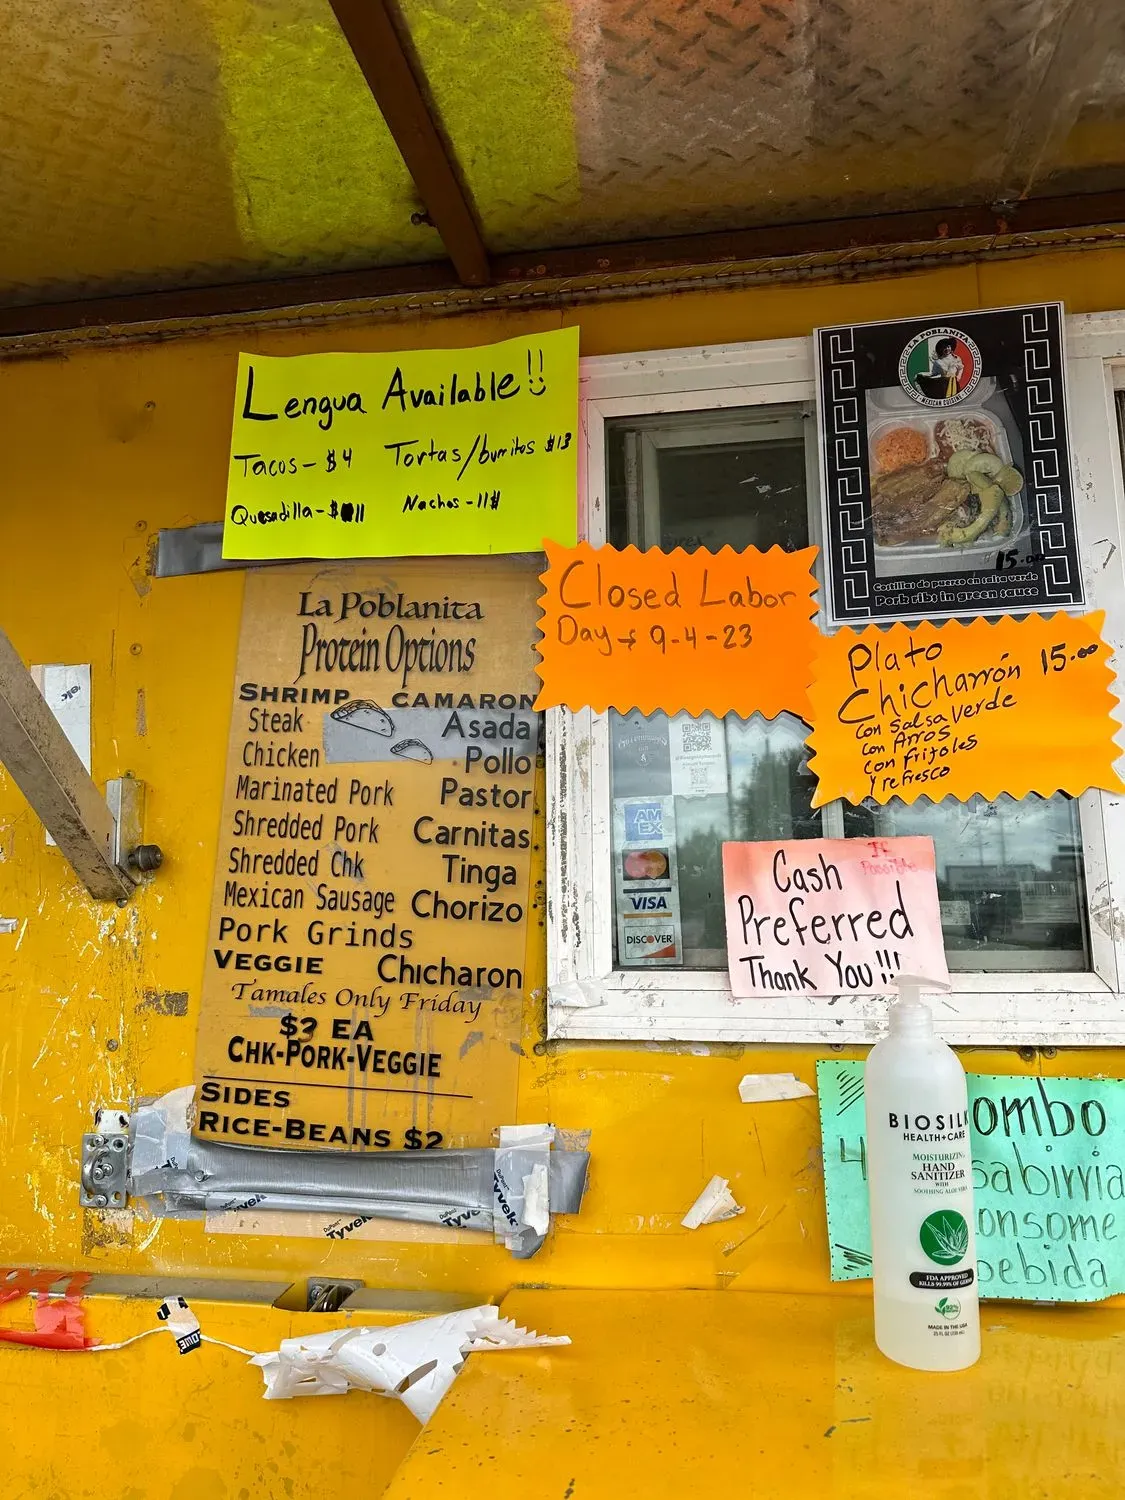 Lengua Available!!
Tacos - $4 Tortas/burritos $13
Quesadilla - $11 Nachos - 11$
La Poblanita
Protein Options
SHRIMP CAMARON
Steak Asada
Chicken Pollo
Marinated Pork Pastor
Shredded Pork Carnitas
Shredded Chk Tinga
Mexican Sausage Chorizo
Pork Grinds
VEGGIE Chicharon
Tamales Only Friday
$3 EA
CHK-PORK-VEGGIE
SIDES
RICE-BEANS $2
DuPont Tyvek
Tyvek
Tyvek
Tyvek
Closed Labor
Day → 9-4-23
LA POBLANITA
MEXICAN CUISINE
15.00
Costillas de puerco en salsa verde
Pork ribs in green sauce
Plato
Chicharrón 15.00
con salsa Verde
con Arros
con frijoles
y refresco
AM
EX
VISA
DISCOVER
Cash If
Possible
Preferred
Thank You!!!
4
ombo
sabirria
onsome
bebida
BIOSILK
HEALTH+CARE
MOISTURIZING
HAND
SANITIZER
WITH
SOOTHING ALOE VERA
FDA APPROVED
KILLS 99.99% OF GERMS
MADE IN THE USA